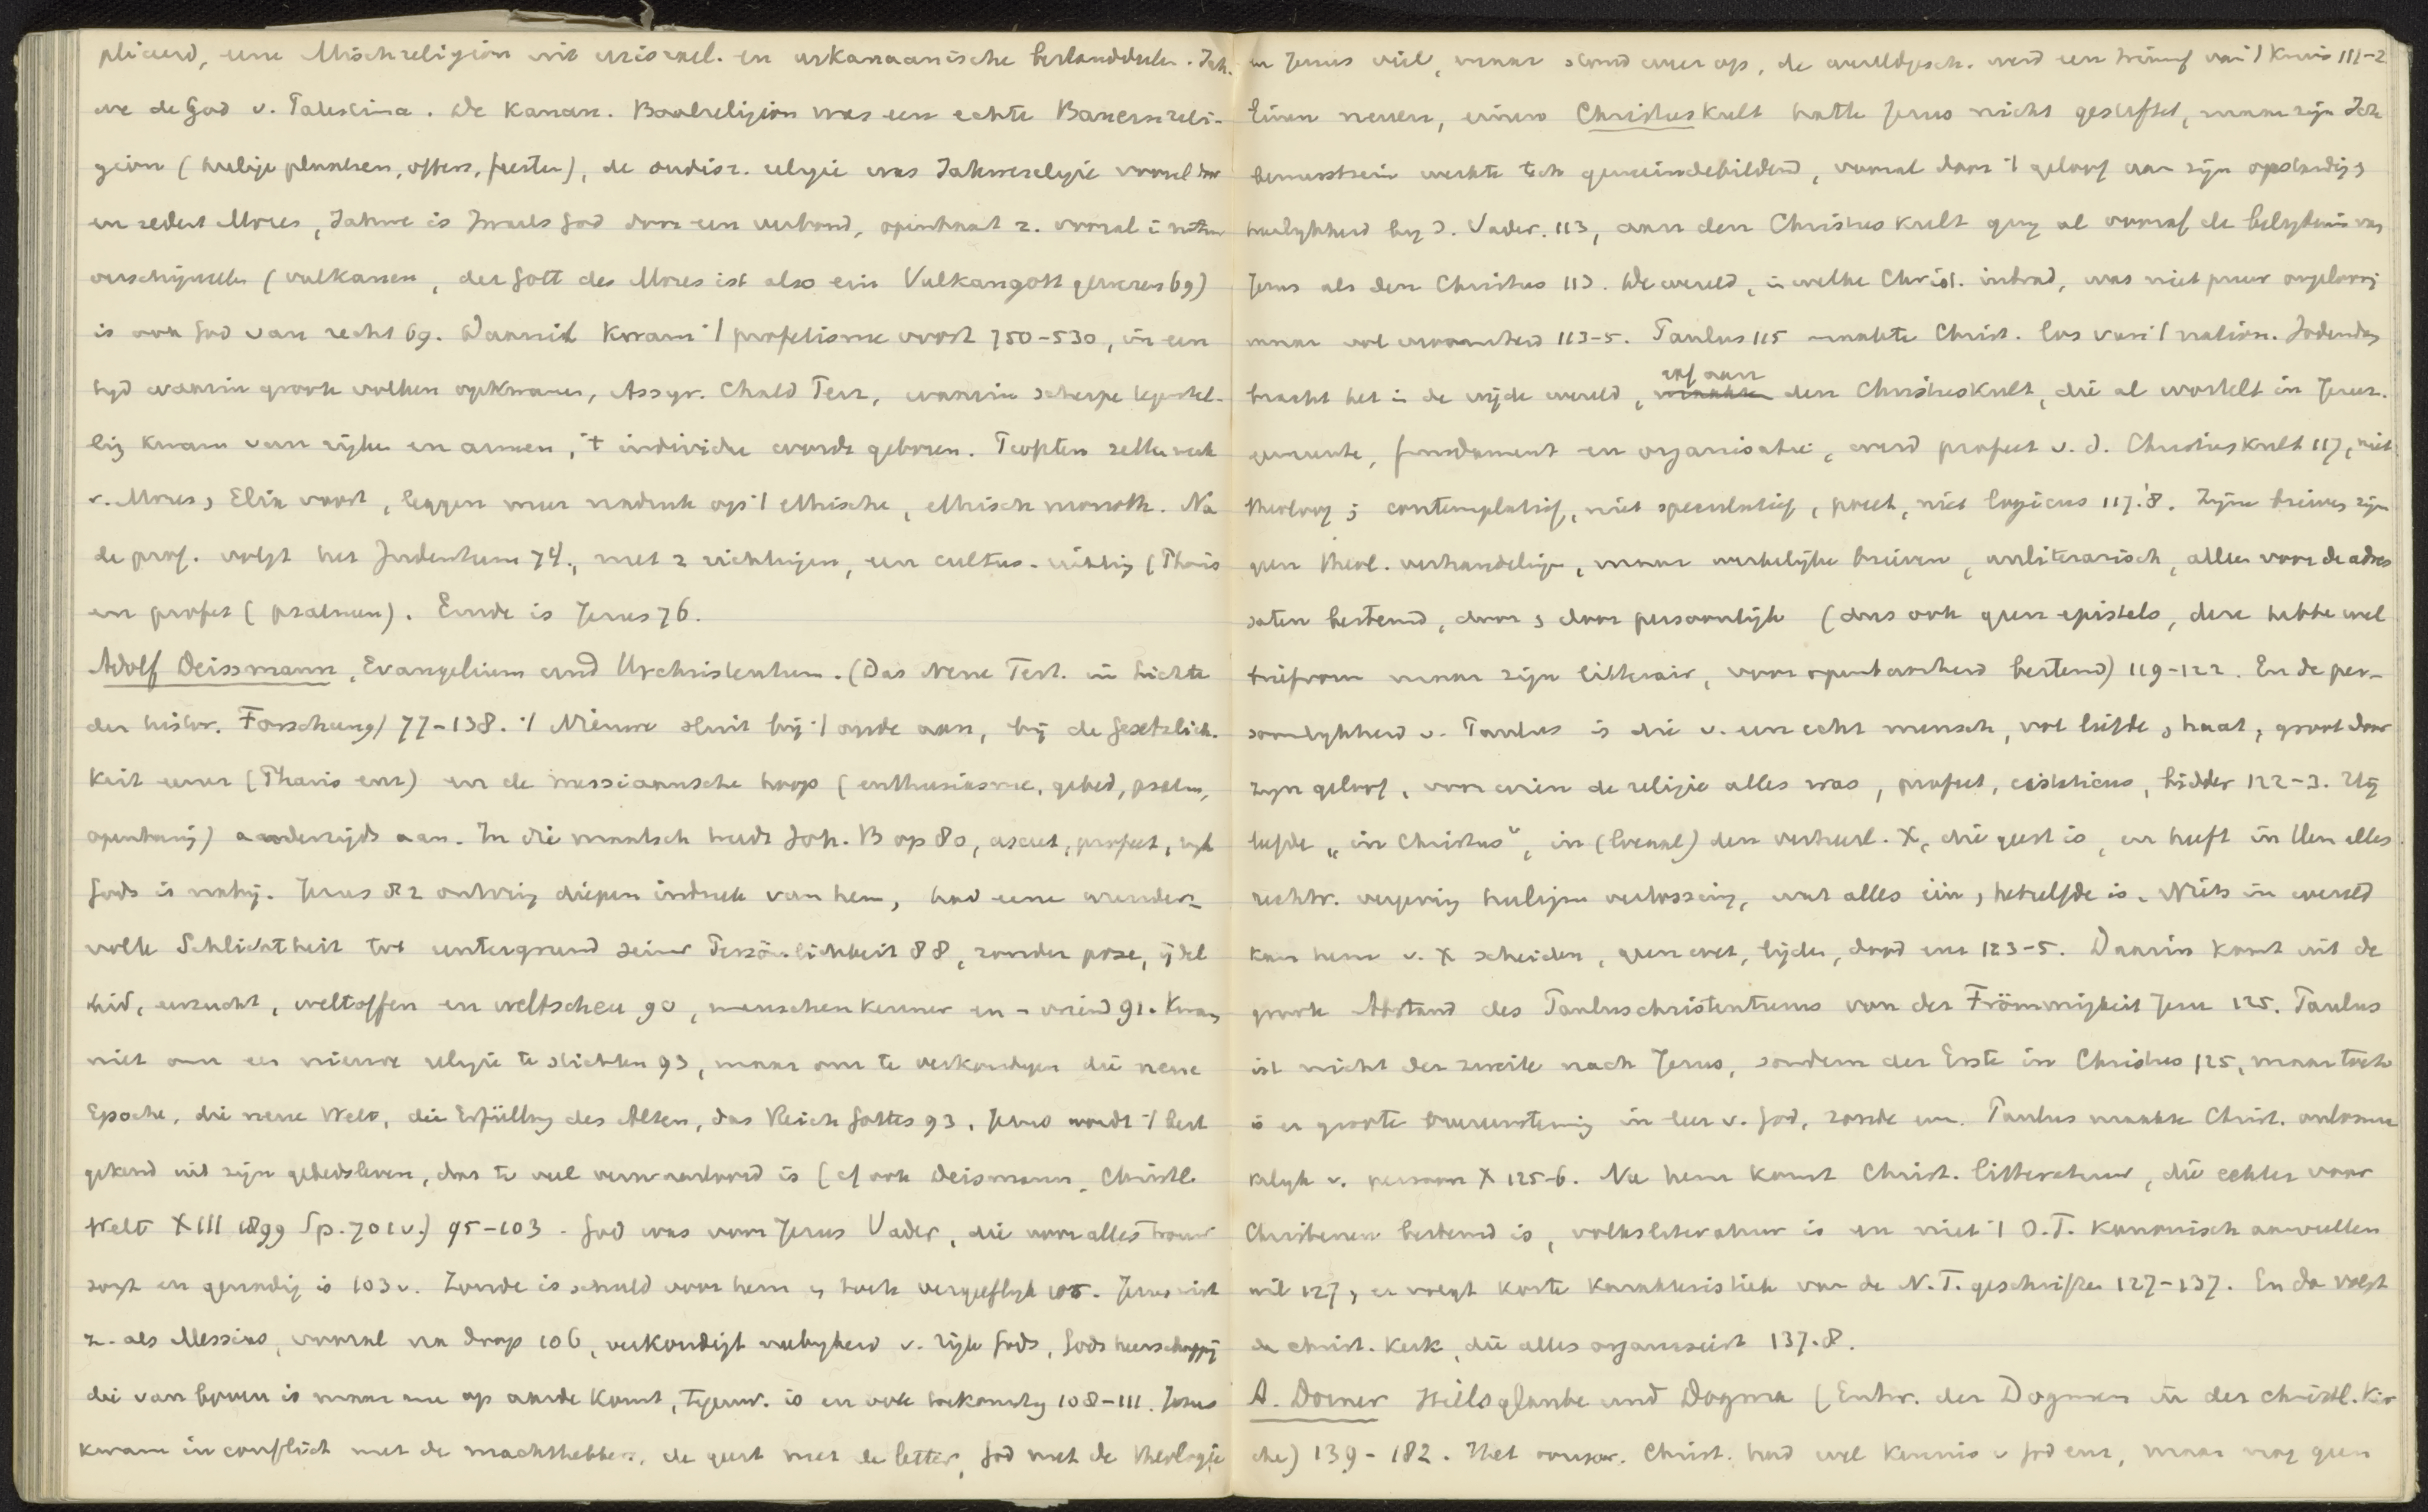 pliceerd, eene Mischreligion uit urisrael. en urkanaanische bestanddeelen. Jah.
we de God v. Palestina. De Kanan. Baalreligion was een echte Bauernreli-
gion (heilige plaatsen, offers, feesten), de oudisr. religie was Jahwereligie vooral door
en sedert Mozes, Jahwe is Israels God door een verbond, openbaart z. vooral in natuur
verschijnselen (vulkanen, der Gott des Moses ist also ein Vulkangott gewesen 69)
is ook God van recht 69. Daaruit kwam 't profetisme voort 750-530, in een
tijd waarin groote volken opkwamen, Assyr. Chald Perz, waarin scherpe tegenstel-
ling kwam van rijken en armen, 't individu wordt geboren. Profeten zetten werk
v. Mozes & Elia voort, leggen meer nadruk op 't ethische, ethisch monoth. Na
de prof. volgt het Judenthum 74, met 2 richtingen, een cultus-richting (Phariz
en profet (psalmen). Einde is Jezus 76.
Adolf Deissmann, Evangelium und Urchristentum. (Das Neue Test. im Lichte
der histor. Forschung) 77-138. 't Nieuwe sluit bij 't oude aan, bij de Gesetzlich-
keit eener (Phariz enz) en de messiaansche hoop (enthusiasme, gebed, psalm,
openbaring) anderzijds aan. In die maatsch treedt Joh. B op 80, asceet, profeet, rijk
Gods is nabij. Jezus 82 ontving diepen indruk van hem, had eene wunder-
volle Schlichtheit tot untergrund seiner Persönlichkeit 88, zonder pose, ijdel
heid, eerzucht, weltoffen en weltscheu 90, menschenkenner en - vriend 91. Kwam
niet om een nieuwe religie te stichten 93, maar om te verkondigen die neue
Epoche, die neue Welt, die Erfüllung des Alten, das Reich Gottes 93. Jezus wordt 't best
gekend uit zijn gebedsleven, dat te veel verwaarloosd is (cf ook Deismann, Christl.
Welt XIII 1899 Sp. 701 v.) 95-103. God was voor Jezus Vader, die voor alles trouw
zorgt en genadig is 103 v. Zonde is schuld voor hem & toch vergeeflijk 105. Jezus wist
z. als Messias, vooral na doop 106, verkondigt nabijheid v. rijk Gods, Gods heerschappij
die van boven is maar nu op aarde komt, tegenw. is en ook toekomstig 108-111. Jezus
kwam in conflict met de machthebbers, de geest met de letter, God met de theologie
en Jezus viel, maar stond weer op, de wereldgesch. werd een triumf van 't Kruis 111-2
Einen neuen, einen Christuskult hatte Jesus nicht gestiftet, maar zijn Ich
bewusstsein werkte toch gemeindebildend, vooral door 't geloof aan zijn opstanding &
heerlijkheid bij d. Vader. 113, aan den Christuskult ging al vooraf de belijdenis van
Jezus als den Christus 113. De wereld, in welke Christ. intrad, was niet puur ongeloovig
maar vol vroomheid 113-5. Paulus 115 maakte Christ. los van 't nation. Jodendom
bracht het in de wijde wereld, gaf aan den Christuskult, die al wortelt in Jeruz.
gemeente, fundament en organisatie, werd profeet v. d. Christuskult 117, niet
theoloog; contemplatief, niet speculatief, poeet, niet logicus 117.8. Zijne brieven zijn
geen theol. verhandelingen, maar werkelijke brieven, unliterarisch, alleen voor de adres
saten bestemd, door & door persoonlijk (dus ook geen epistels, deze hebben wel
briefvorm maar zijn litterair, voor openbaarheid bestemd) 119-122. En de per-
soonlijkheid v. Paulus is die v. een echt mensch, vol liefde & haat, groot door
zijn geloof, voor wien de religie alles was, profeet, mysticus, bidder 122-3. Hij
leefde „in Christus", in (locaal) den verheerl. X, die geest is, en heeft in Hem alles
rechtv. vergeving heiliging verlossing, wat alles één & hetzelfde is. Niets in wereld
kan hem v. X scheiden, geen wet, lijden, dood enz 123-5. Daarin komt uit de
groote Abstand des Pauluschristentums von der Frömmigkeit Jesu 125. Paulus
ist nicht der zweite nach Jesus, sondern der Erste in Christus 125, maar toch
is er groote overeenstemming in leer v. God, zonde enz. Paulus maakte Christ. onlosma
kelijk v. persoon X 125-6. Na hem komt Christ. litteratuur, die echter voor
Christenen bestemd is, volksliteratuur is en niet 't O.T. kanonisch aanvullen
wil 127, er volgt korte karakteristiek van de N.T. geschriften 127-137. En dan volgt
de christ. Kerk, die alles organiseert 137.8.
A. Dorner Heilsglaube und Dogma (Entw. der Dogmen in der christl. Kir
che) 139-182. Het oorspr. Christ. had wel kennis v God enz, maar nog geen